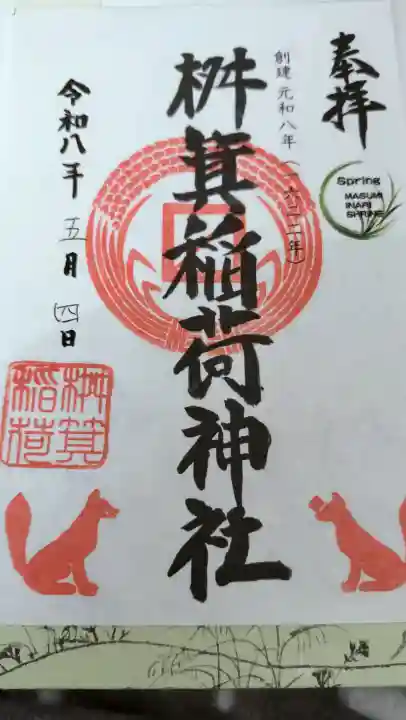 奉拝
Spring
MASUMI
INARI
SHRINE
創建 元和八年(一六二二年)
桝箕稲荷神社
令和八年 五月 四日
桝箕
稲荷